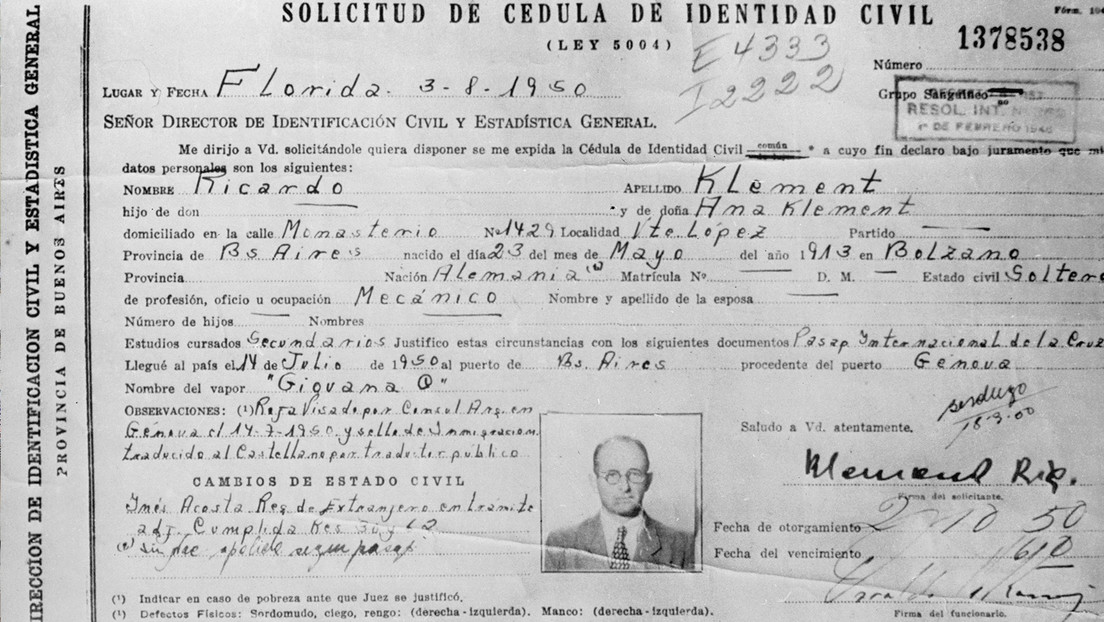 SOLICITUD DE CEDULA DE IDENTIDAD CIVIL
(LEY 5004)
E 4333
I 2222
1378538
Número
Grupo Sanguíneo
RESOL. INT.
1º DE FEBRERO 1946
LUGAR Y FECHA Florida 3-8-1950
SEÑOR DIRECTOR DE IDENTIFICACIÓN CIVIL Y ESTADÍSTICA GENERAL.
Me dirijo a Vd. solicitándole quiera disponer se me expida la Cédula de Identidad Civil común * a cuyo fin declaro bajo juramento que mi
datos personales son los siguientes:
NOMBRE Ricardo APELLIDO Klement
hijo de don y de doña Ana Klement
domiciliado en la calle Monasterio Nº 1429 Localidad Vte. López Partido
Provincia de Bs Aires nacido el día 23 del mes de Mayo del año 1913 en Bolzano
Provincia Nación Alemania Matrícula Nº. D. M. Estado civil Soltero
de profesión, oficio u ocupación Mecánico Nombre y apellido de la esposa
Número de hijos Nombres
Estudios cursados Secundarios Justifico estas circunstancias con los siguientes documentos Pasap. Internacional de la Cruz
Llegué al país el 14 de Julio de 1950 al puerto de Bs. Aires procedente del puerto Génova
Nombre del vapor "Giovana
OBSERVACIONES: (1) Roja Visado por Consul Arg. en
Génova el 14-7-1950 y sello de Inmigracion
traducido al Castellano por traductor público
Saludo a Vd. atentamente.
CAMBIOS DE ESTADO CIVIL
Inés Acosta Reg. de Extranjero en tramite
Cumplida
segun pasap
Klement Ric.
Firma del solicitante.
Fecha de otorgamiento 2 10 50
Fecha del vencimiento
Firma del funcionario.
(¹) Indicar en caso de pobreza ante que Juez se justificó.
(¹) Defectos Físicos: Sordomudo, ciego, rengo: (derecha-izquierda). Manco: (derecha-izquierda).
DIRECCION DE IDENTIFICACION CIVIL Y ESTADISTICA GENERAL
PROVINCIA DE BUENOS AIRES